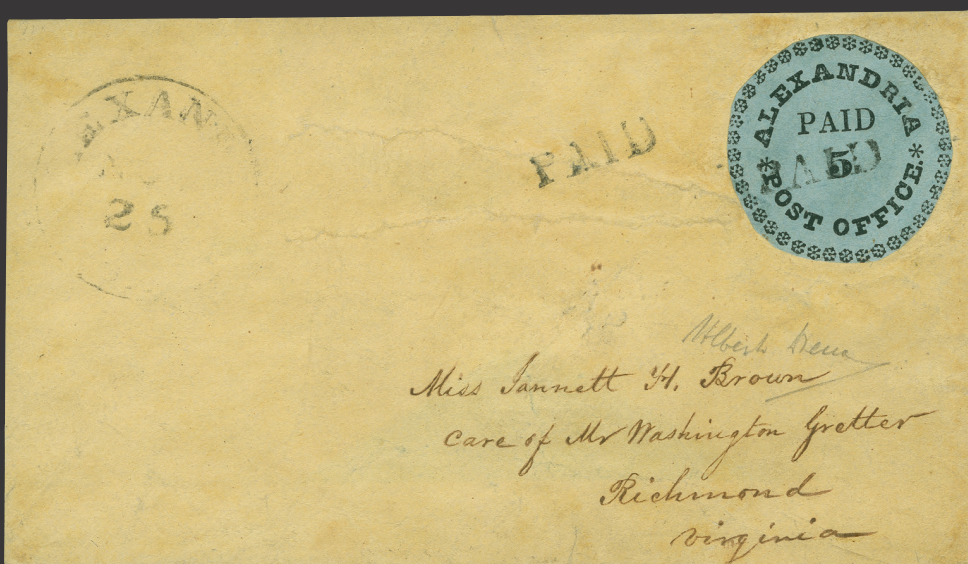 EXAN
25
PAID
ALEXANDRIA
PAID
5
PAID
* POST OFFICE. *
Miss Jannett H. Brown
Care of Mr Washington Gretter
Richmond
Virginia